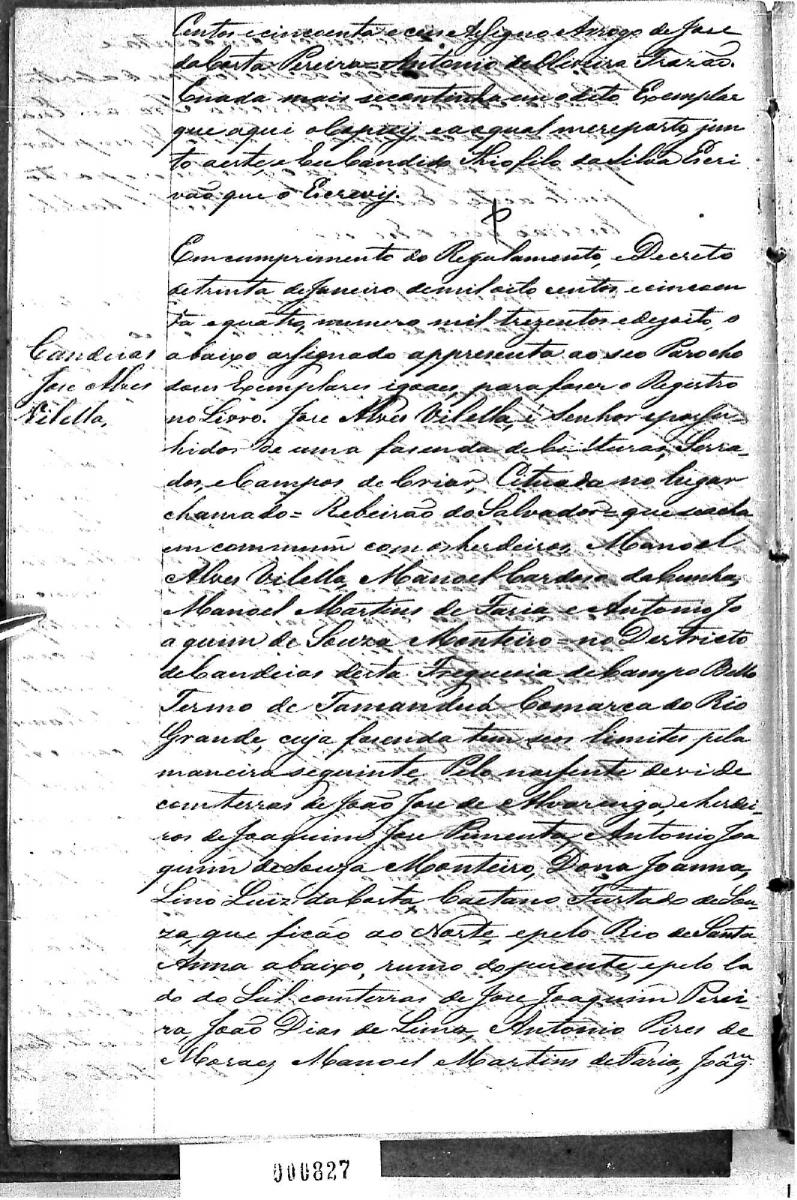 Centos e cincoenta e ceis Assigno Arrogo de Jose
da Costa Pereira = Antonio de Oliveira Frazão.
E nada mais se contenda em o dito Exemplar
que aqui o Copiey, e ao qual me reporto, jun
to a este, e Eu Candido Thiofilo da Silva Escri
vão que o Escrevy.
Em cumprimento do Regulamento, e Decreto
de trinta de Janeiro de mil oito centos e cincoen
ta e quatro, numero mil trezentos e dezoito, o
Candeias
Jose Alves
Vilella,
abaixo assignado appresenta ao seo Parocho
dous Exemplares igoaes, para faser o Registro
no Livro. Jose Alves Vilella, é Senhor e possu-
hidos de uma fasenda de Culturas, Serra-
dos, e Campos de Criar, Cituada no lugar
chamado = Rebeirão do Salvador = que se acha
em commum com os herdeiros, Manoel
Alves Vilella, Manoel Cardoso da Cunha,
Manoel Martins de Faria, e Antonio Jo
aquim de Souza Monteiro = no Destricto
de Candeias desta Freguesia de Campo Bello
Termo de Tamanduá Comarca do Rio
Grande, cuja fasenda tem seos limites pela
maneira seguinte. Pelo nascente devide
com terras de João Jose de Alvarenga, e herdei
ros de Joaquim Jose Pimenta, Antonio Joa
quim de Souza Monteiro, Dona Joanna,
Lino Luiz da Costa, Caetano Furtado de Sou-
za, que ficão ao Norte, e pelo Rio de Santa
Anna abaixo, rumo do puente, e pelo la
do do Sul com terras de Jose Joaquim Perei-
ra, João Dias de Lima, Antonio Pires de
Moraes, Manoel Martins de Faria, Joaqm
000827